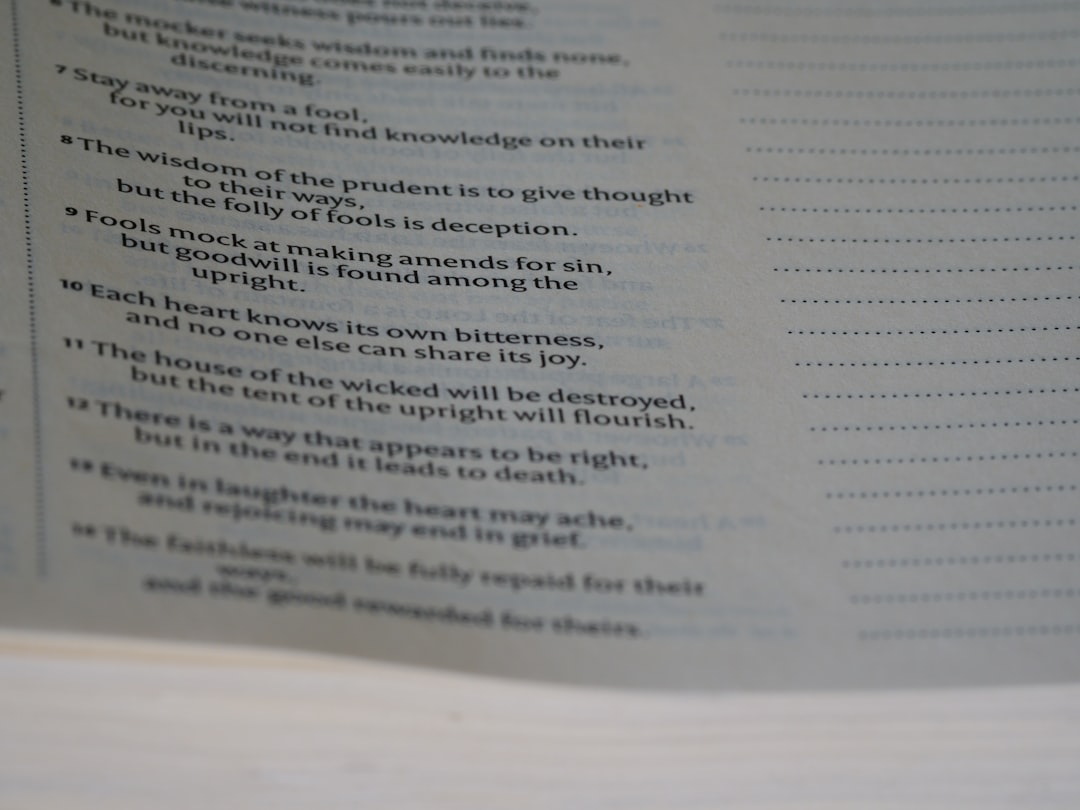 witness pours out lies.
6 The mocker seeks wisdom and finds none,
but knowledge comes easily to the
discerning.
7 Stay away from a fool,
for you will not find knowledge on their
lips.
8 The wisdom of the prudent is to give thought
to their ways,
but the folly of fools is deception.
9 Fools mock at making amends for sin,
but goodwill is found among the
upright.
10 Each heart knows its own bitterness,
and no one else can share its joy.
11 The house of the wicked will be destroyed,
but the tent of the upright will flourish.
12 There is a way that appears to be right,
but in the end it leads to death.
13 Even in laughter the heart may ache,
and rejoicing may end in grief.
14 The faithless will be fully repaid for their
ways,
and the good rewarded for theirs.